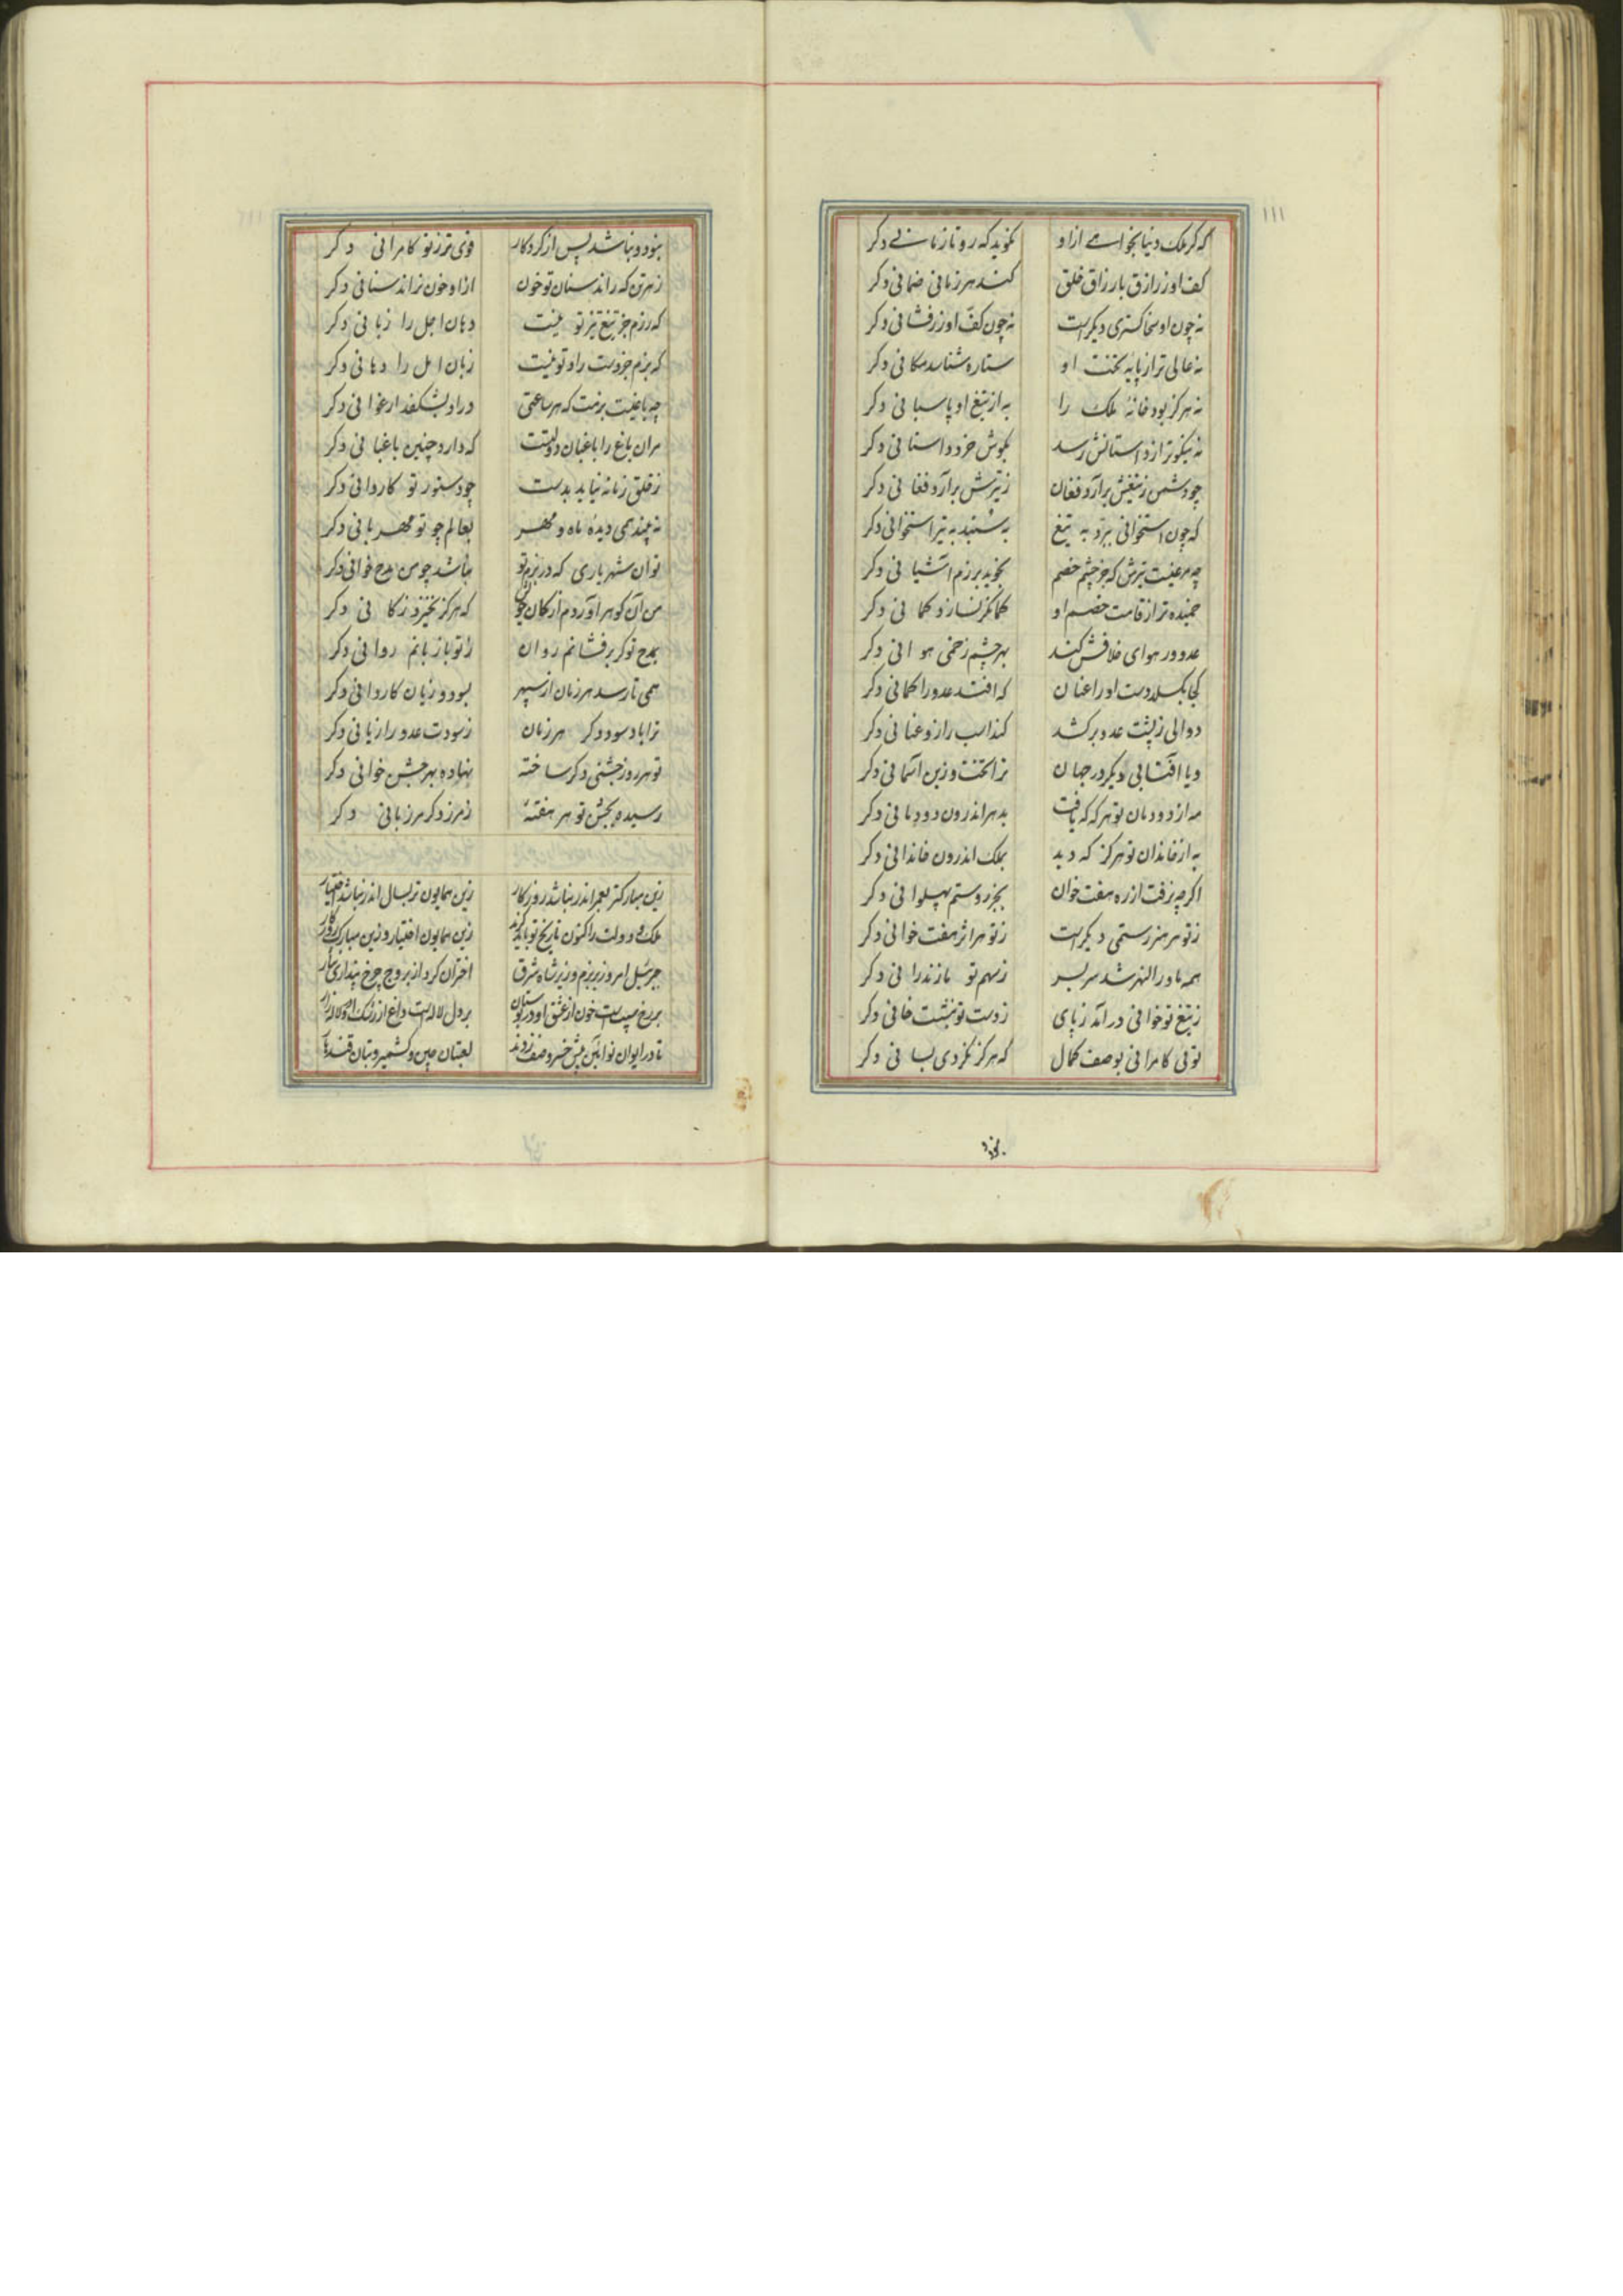 ۱۱۱
که گر ملک دنیا بخواهی ازاو نگوید که رو تا زمانی دکر
کف او ز رازق بارزاق خلق کند هر زمانی ضمانی دکر
نه چون او سخا کستری دیکر است نه چون کف او زرفشانی دکر
نه عالی تر از پایه تخت او ستاره شناسد مکانی دکر
نه هرکز بود خانه ملک را به از تیغ او پاسبانی دکر
نه نیکوتر از داستانش رسد بکوش خرد داستانی دکر
چو دشمن ز تیغش برآرد فغان ز تیرش برآرد فغانی دکر
که چون استخوانی ببرد به تیغ به سنبد به تیر استخوانی دکر
چه مرغیست تیرش که جز چشم خصم نجوید برزم آشیانی دکر
خمیده تر از قامت خصم او کمانکر نسازد کمانی دکر
عدو در هوای خلافش کند بهر چشم زخمی هوانی دکر
کجا بکسلد دست او را عنان که افتد عدو را کمانی دکر
دوالی ز پشت عدو برکشد کند اسب را زو عنانی دکر
ویا آفتابی دیکر در جهان ترا تخت و زین آسمانی دکر
مه از دودمان تو هرکه که یافت بدهر اندرون دودمانی دکر
به از خاندان تو هرکز که دید بملک اندرون خاندانی دکر
اکرچه نرفت از ره هفت خوان بجز روستم پهلوانی دکر
ز تو هر هنر رستمی دیکر است ز تو هر اثر هفت خوانی دکر
همه ماورا النهر شد سر بسر ز سهم تو مازندرانی دکر
ز تیغ تو خوانی درآمد ز پای ز دست تو بنشست خانی دکر
توئی کامرانی بوصف کمال که هرکز نکردی بسانی دکر
نبود
نبود و نباشد پس از کردکار قوی تر ز تو کامرانی دکر
ز هر تن که راند سنان تو خون ازاو خون نراند سنانی دکر
که رزم جز تیغ تیز تو نیست دهان اجل را زبانی دکر
که بزم جز دست راد تو نیست زبان امل را دهانی دکر
چه باغیست بزمت که هر ساعتی دراو بشکفد ارغوانی دکر
مران باغ را باغبان دولتست که دارد چنین باغبانی دکر
ز خلق زمانه نیاید بدست چو دستور تو کاردانی دکر
نه بیند همی دیده ماه و مهر بعالم چو تو مهربانی دکر
توآن شهریاری که در بزم تو نباشد چو من مدح خوانی دکر
من آن کوهر آوردم از کان که هرکز نخیزد ز کانی دکر
بمدح تو کر برفشانم روان زاتو باز یابم روانی دکر
همی تا رسد هر زمان از سپهر بسود و زیان کاروانی دکر
ترا باد سود دکر هر زمان ز سودت عدو را زیانی دکر
تو هر روز جشنی دکر ساخته نهاده بهر جشن خوانی دکر
رسیده بجشن تو هر هفتهٔ ز مرز دکر مرزبانی دکر
زین مبارکتر بعمر اندر نباشد روزکار زین همایون تر بسال اندر نباشد اختیار
ملک و دولت را کنون تاریخ تو باید کزند زین همایون اختیار و زین مبارک روزکار
جبرئیل امروز بر بزم وزیر شاه شرق اختران کرد از بروج چرخ پنداری نثار
بر رخ سیب است خون از عشق او در بوستان بر دل لاله است داغ از رشک او در لاله زار
تا در ایوان نو آئین پیش خسرو صف زدند لعبتان چین و کشمیر و بتان قندهار